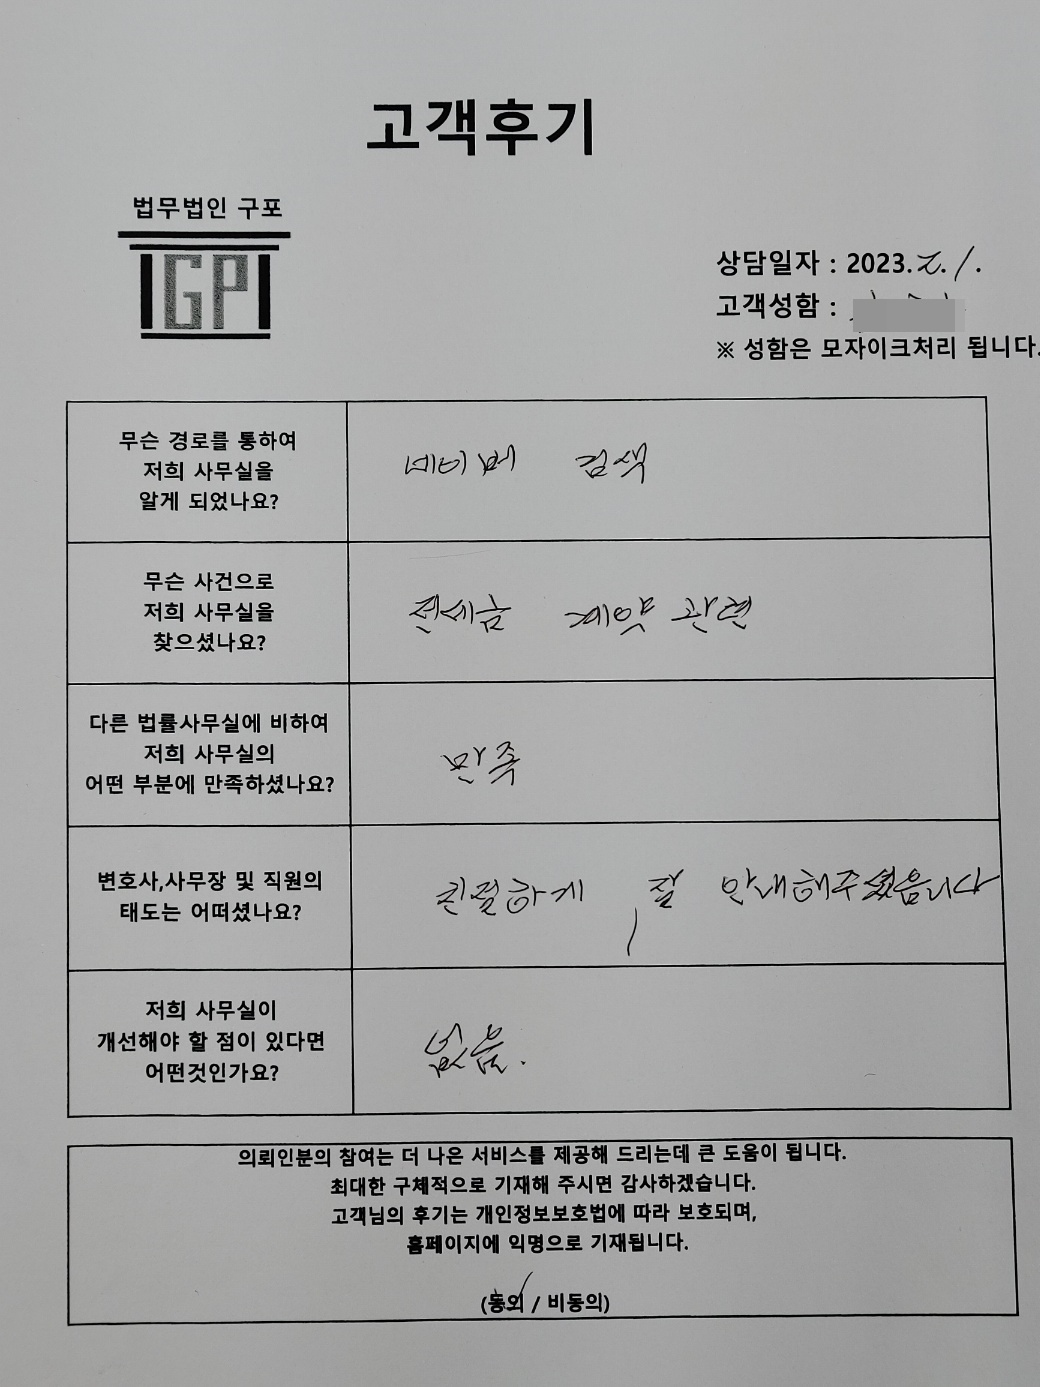 고객후기
법무법인 구포
GP
상담일자 : 2023.2.1.
고객성함 :
※ 성함은 모자이크처리 됩니다.
무슨 경로를 통하여
저희 사무실을
알게 되었나요?
네이버 검색
무슨 사건으로
저희 사무실을
찾으셨나요?
전세금 계약 관련
다른 법률사무실에 비하여
저희 사무실의
어떤 부분에 만족하셨나요?
만족
변호사,사무장 및 직원의
태도는 어떠셨나요?
친절하게 잘 안내해주셨음니다
저희 사무실이
개선해야 할 점이 있다면
어떤것인가요?
없음.
의뢰인분의 참여는 더 나은 서비스를 제공해 드리는데 큰 도움이 됩니다.
최대한 구체적으로 기재해 주시면 감사하겠습니다.
고객님의 후기는 개인정보보호법에 따라 보호되며,
홈페이지에 익명으로 기재됩니다.
(동의 / 비동의)